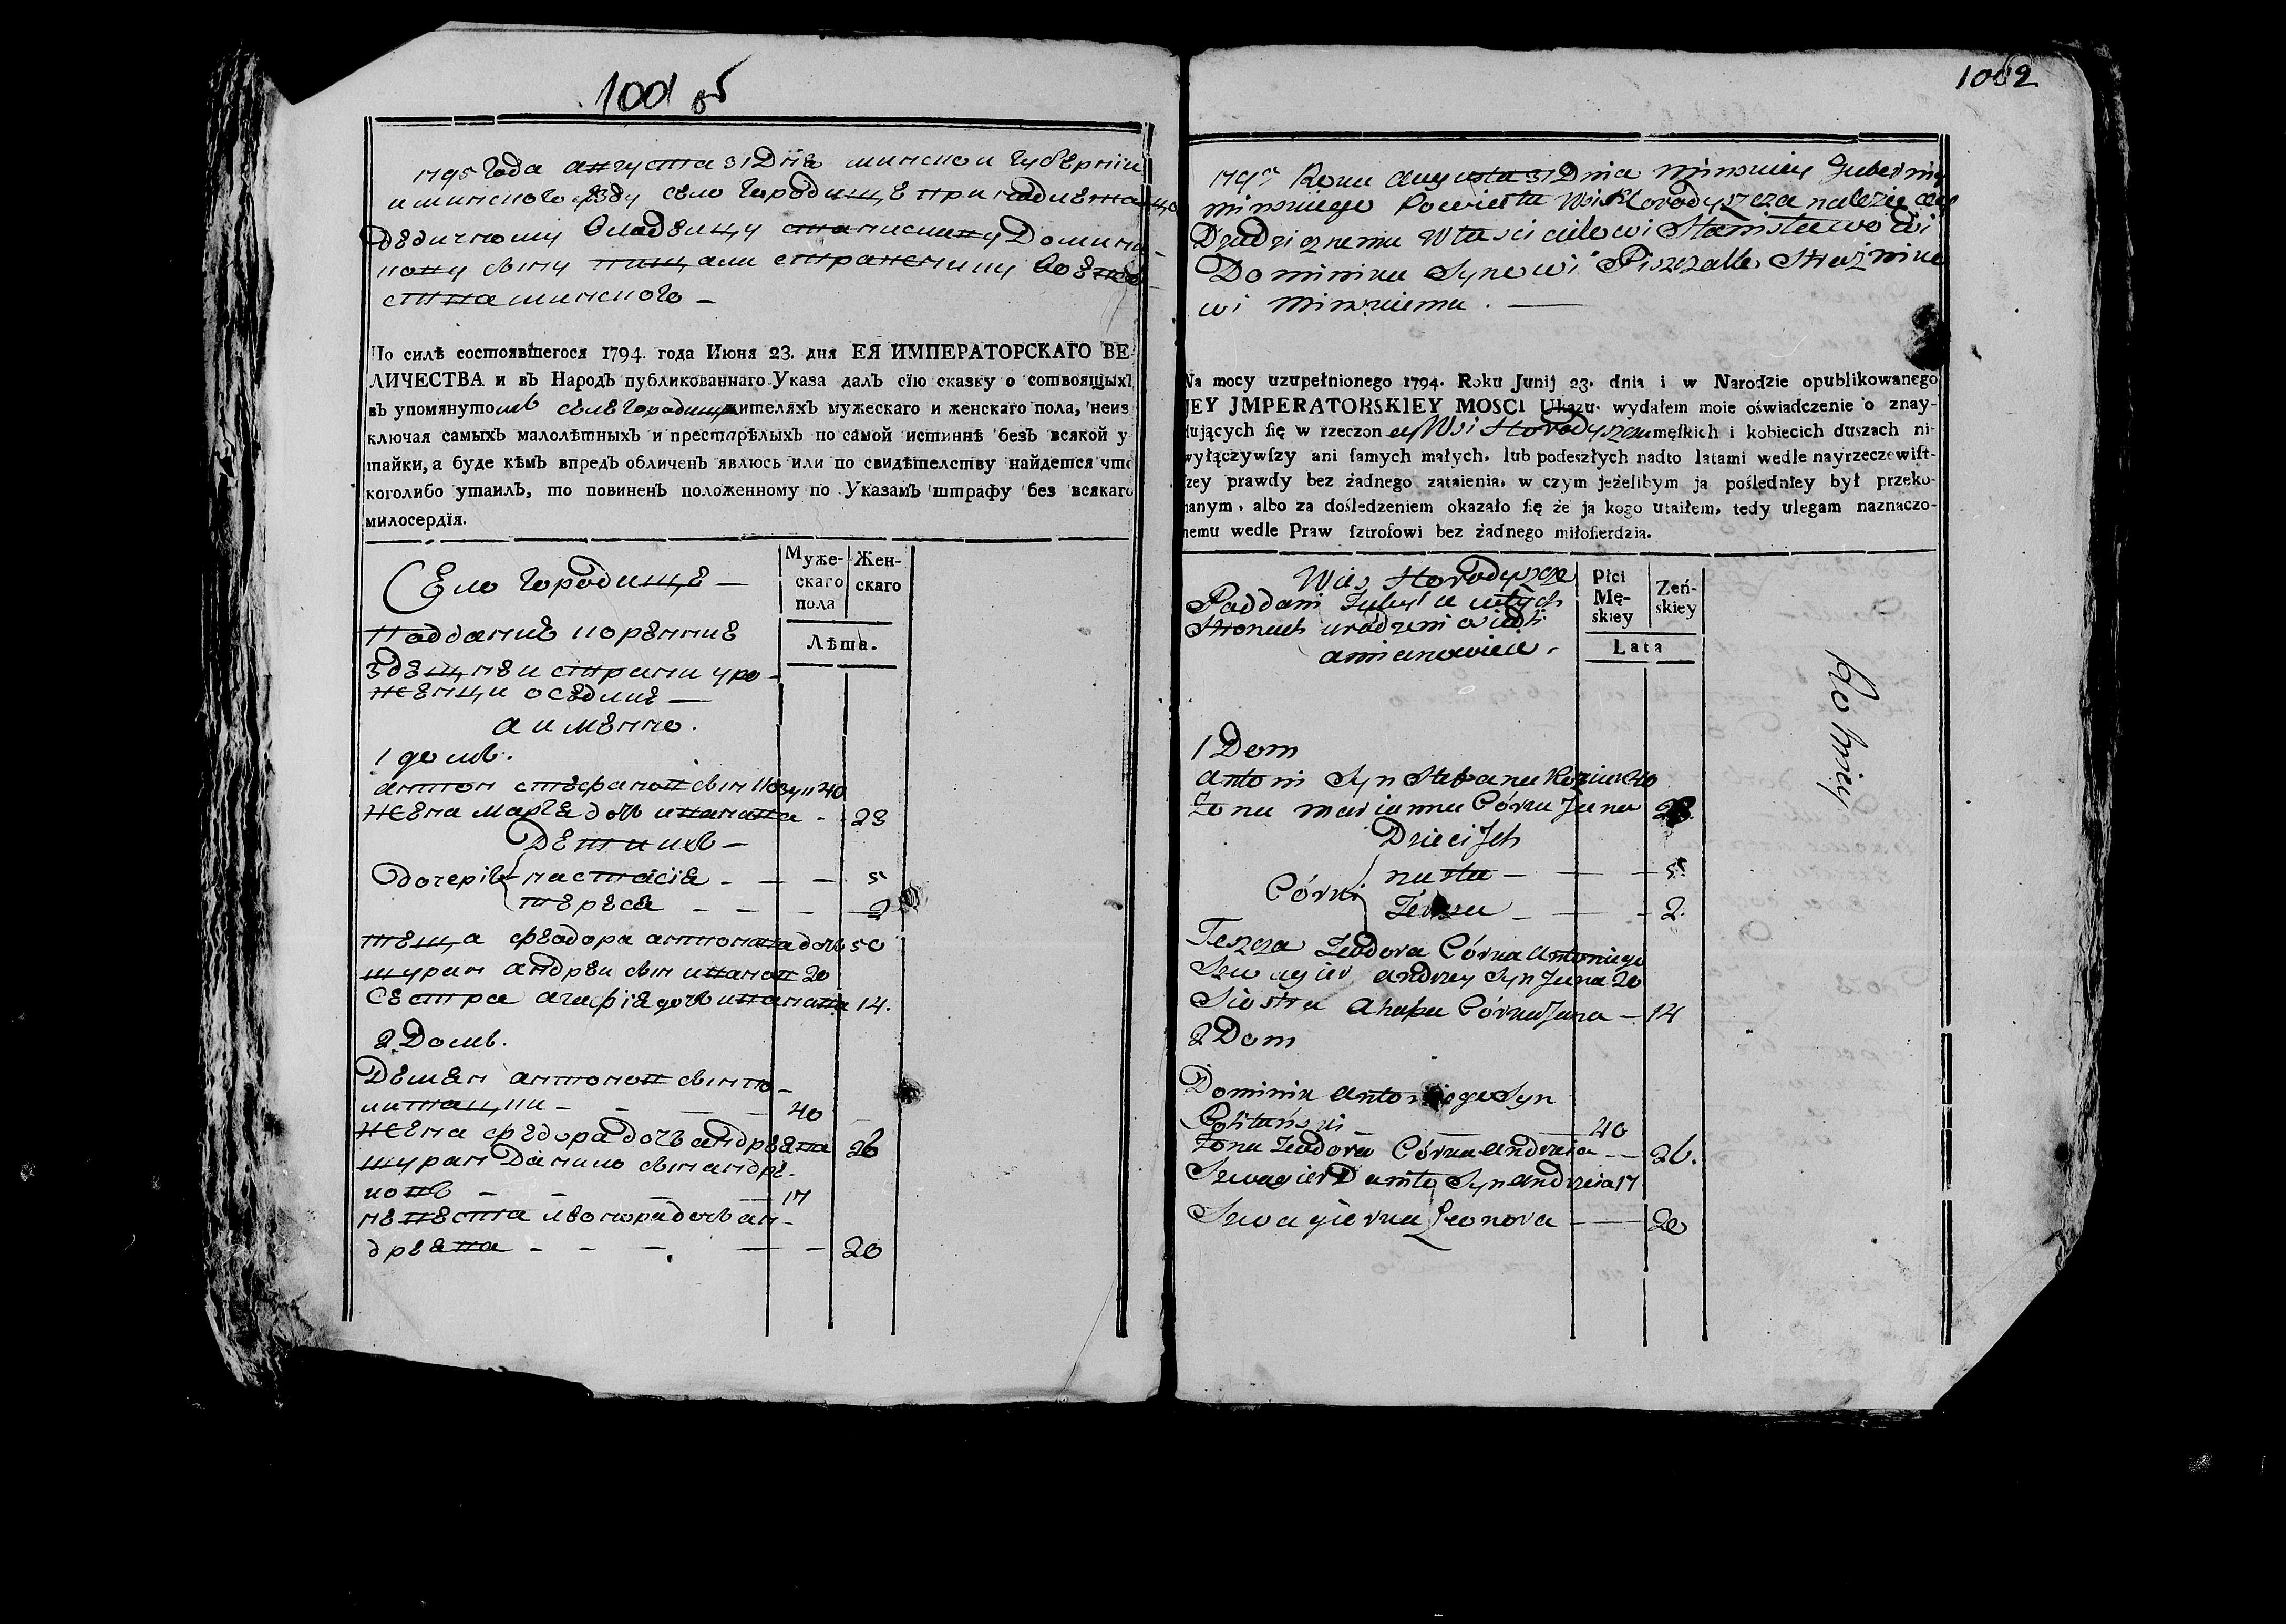 1001 об
1795 Года августа 31 Дня минской губерніи
и минского уѣзду село Городище принадлежащо
дѣдичному владелцу станиславу Домини
кову сыну пищали стражнику воево
ства минского —
По силѣ состоявшегося 1794. года Июня 23. дня ЕЯ ИМПЕРАТОРСКАГО ВЕ-
ЛИЧЕСТВА и въ Народъ публикованнаго Указа далъ сїю сказку о сотвоящыхъ
въ упомянутомъ селѣ Городищ жителяхъ мужескаго и женскаго пола, неиз
ключая самыхъ малолѣтныхъ и престарѣлыхъ по самой истиннѣ безъ всякой у
тайки, а буде кѣмъ впредъ обличенъ явлюсь или по свидѣтелству найдется что
коголибо утаилъ, то повиненъ положенному по Указамъ штрафу без всякаго
милосердїя.
Муже-скаго пола Жен-скаго
Лѣта.
Село Городище —
Паддание корѣнние
здешнеи страни уро-
женци оседлие —
а имѣнно.
1 домъ.
антон стефанов син 40
жена Маря дочь иванова - 23
Дети ихъ —
дочеріе настасіа - — — 5
тереса - - - — 2
теща феодора антонова дочь 50
шурин андреи син иванов 20
Сестра агафія дочь иванова 14.
2 Домъ.
Демян антонов син по-
литански - - — — 40
жена федора дочь андреева 26
шурин Данило син андре-
ювъ — — — — 17
невеста леонора дочь ан-
дреева - - — — — 20
1002
1795 Roku Augusta 31 Dnia Minskiey Gubernij
Minskiego Powiatu Wsi Horodyszcza należącey
Dziedzicznemu Właścicielowi Stanisławowi
Dominika Synowi Piszczalle Strażniko
wi Minskiemu. —
Na mocy uzupełnionego 1794. Roku Junij 23. dnia i w Narodzie opublikowanego
JEY JMPERATORSKIEY MOSCI Ukazu. wydałem moie oświadczenie o znay-
dujących ſię w rzeczon ey Wsi Horodyszczu męſkich i kobiecich duszach ni-
wyłączywſzy ani ſamych małych, lub podeszłych nadto latami wedle nayrzeczewiſt-
szey prawdy bez żadnego zataienia, w czym jeżelibym ja pośledniey był przeko-
nanym, albo za dośledzeniem okazało ſię że ja kogo utaiłem, tedy ulegam naznaczo-
nemu wedle Praw ſztrofowi bez żadnego miłoſierdzia.
Płci Mę-skiey Zeń-skiey
Lata
Wies Horodyszcze
Paddani Tuteyſi w
Stronach urodzeni osiedli
a mianowicie.
1 Dom
Antoni Syn Stefana 40
Żona Marianna Córka Jana 23.
Dzieci Jch
Córki nasta — — — 5.
Teressa — — - 2.
Teszcza Teodora Córka Antoniego
Szwagier Andrzey Syn Jana 20
Siostra Ahapa Córka Jana — 14
2 Dom
Dominik Antoniego Syn
Politański - — — 40
Żona Teodora Córka Andrzeia — 26.
Szwagier Daniło Syn Andrzeia 17
Szwagierka Leonora - — 20